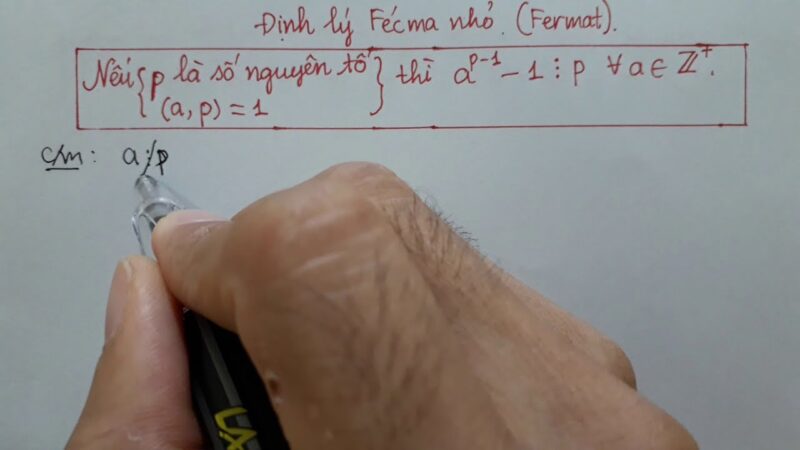 Định lý Fécma nhỏ. (Fermat).
Nếu { p là số nguyên tố } thì a^{p-1} - 1 ⋮ p ∀ a ∈ ℤ⁺.
(a, p) = 1
c/m : a ⋮̸ p